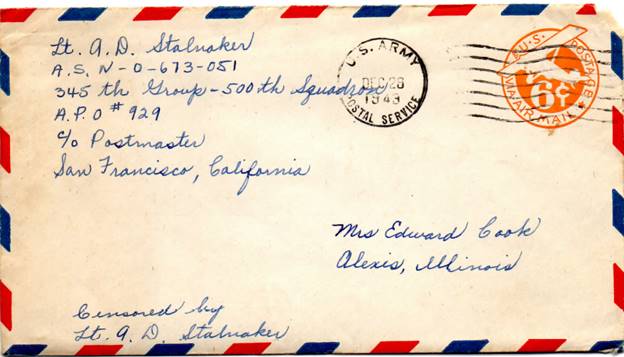 Lt. A. D. Stalnaker
A.S. N-O-673-051
345 th Group-500th Squadron
A.P.O # 929
c/o Postmaster
San Francisco, California
U.S. ARMY
DEC 26
1943
POSTAL SERVICE
U.S. POSTAGE
6¢
VIA AIR MAIL
Mrs Edward Cook
Alexis, Illinois
Censored by
Lt. A. D. Stalnaker